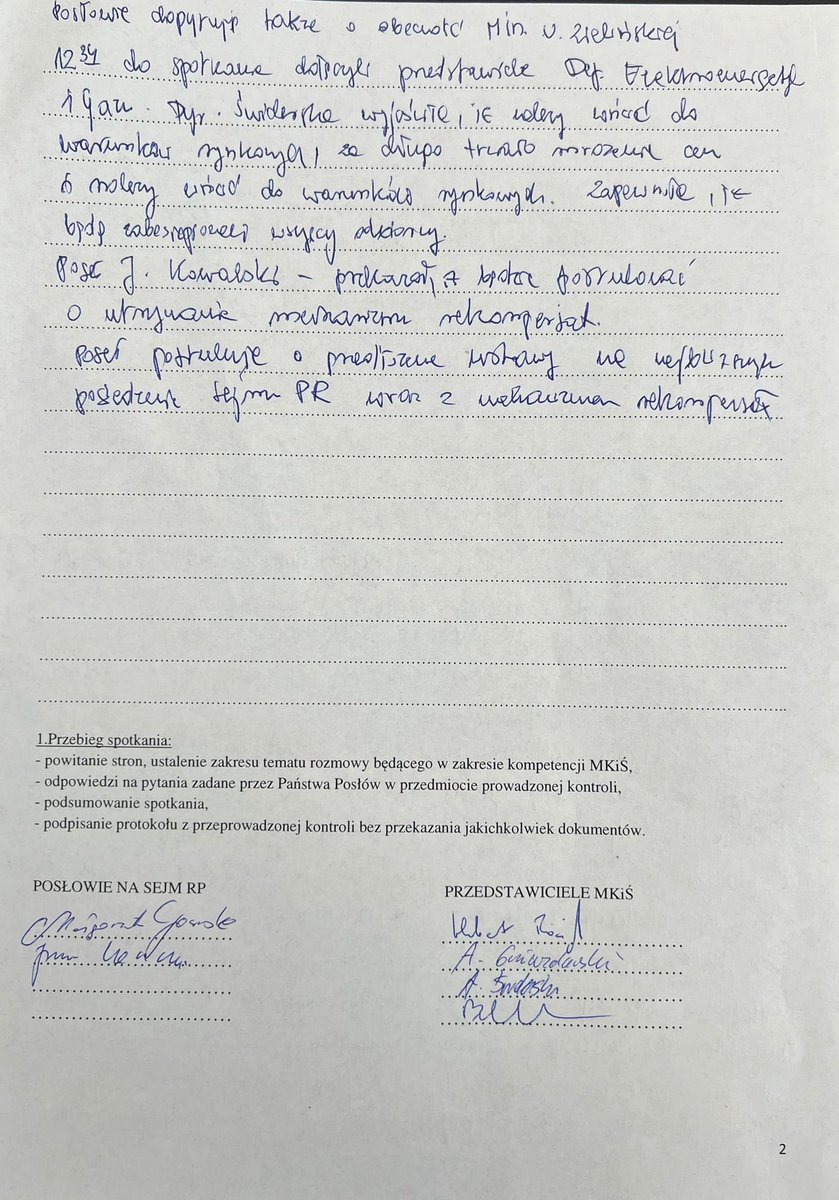 Posłowie dopytują także o obecność Min. U. Zielińskiej
12³4 do spotkania dołączyli przedstawiciele Dep. Elektroenergetyki
i Gazu. Dyr. Świderska wyjaśniła, że należy wrócić do
warunków rynkowych, za długo trwało mrożenie cen
i należy wrócić do warunków rynkowych. Zapewniła, że
będą zabezpieczeni wszyscy odbiorcy.
Poseł J. Kowalski – przekazał, że będzie postulować
o utrzymanie mechanizmu rekompensat.
Poseł postuluje o przedłożenie ustawy na najbliższym
posiedzeniu Sejmu PR wraz z mechanizmem rekompensat
1.Przebieg spotkania:
- powitanie stron, ustalenie zakresu tematu rozmowy będącego w zakresie kompetencji MKiŚ,
- odpowiedzi na pytania zadane przez Państwa Posłów w przedmiocie prowadzonej kontroli,
- podsumowanie spotkania,
- podpisanie protokołu z przeprowadzonej kontroli bez przekazania jakichkolwiek dokumentów.
POSŁOWIE NA SEJM RP
PRZEDSTAWICIELE MKiŚ
A. Gwiazdowski
2